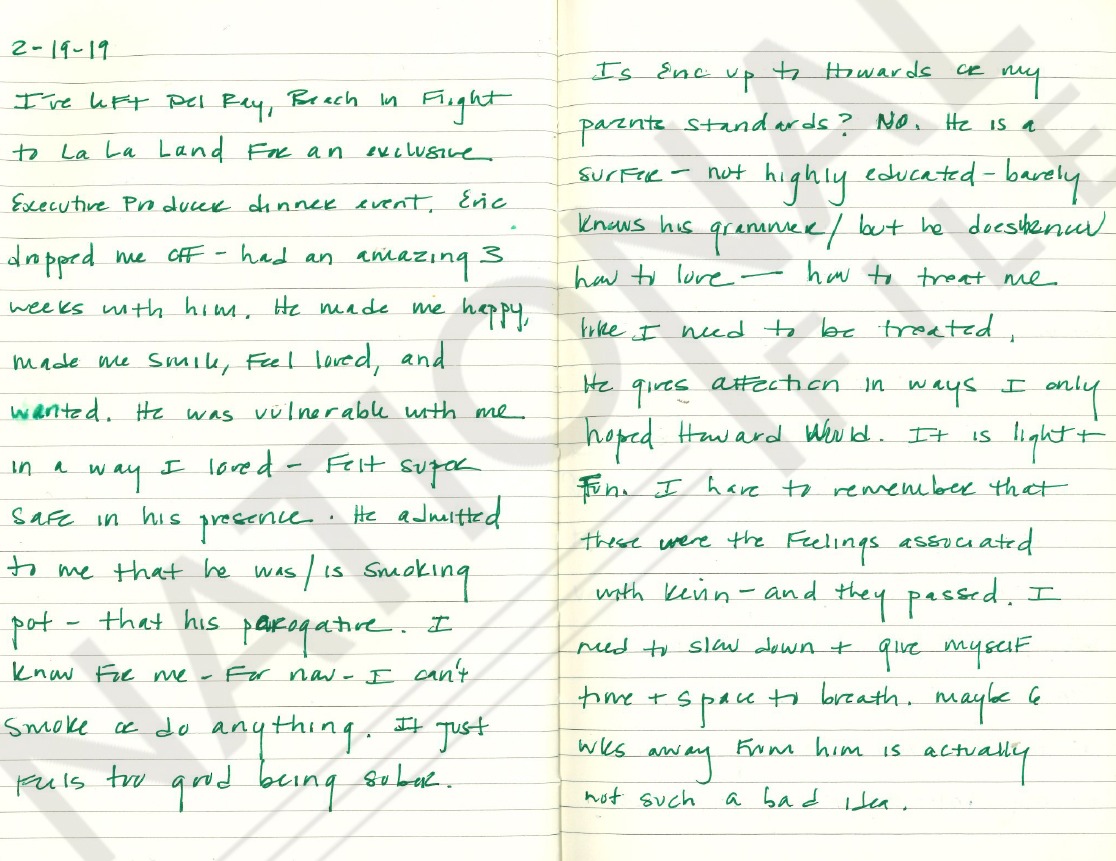 2-19-19
I've left Del Ray, Beach in Flight
to La La Land For an exclusive
Executive Producer dinner event. Eric
dropped me off - had an amazing 3
weeks with him. He made me happy,
made me smile, Feel loved, and
wanted. He was vulnerable with me
in a way I loved - Felt super
safe in his presence. He admitted
to me that he was/is smoking
pot - that his parogative. I
know For me - For now - I can't
smoke or do anything. It just
Feels too good being sober.
Is Eric up to Howards or my
parents standards? No. He is a
surfer - not highly educated - barely
knows his grammer/ but he does know
how to love — how to treat me
like I need to be treated,
He gives affection in ways I only
hoped Howard Would. It is light +
Fun. I have to remember that
these were the Feelings associated
with Kevin - and they passed. I
need to slow down + give myself
time + space to breath. maybe 6
wks away From him is actually
not such a bad idea.
NATIONAL
FILE